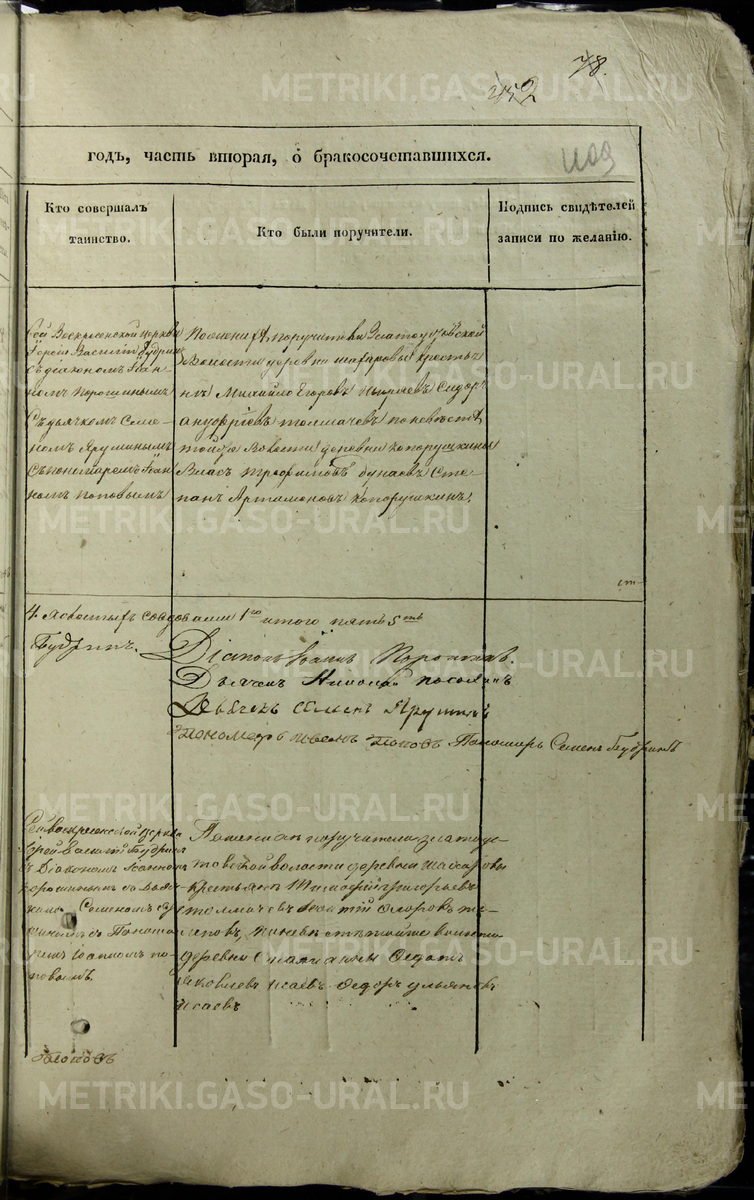 78.
452
годъ, часть вторая, о бракосочетавшихся.
Кто совершалъ таинство.
Кто были поручители.
Подпись свидѣтелей записи по желанію.
Сей Воскресенской церкви
Іерей Василій Будринъ
съ діакономъ Іоан-
номъ
Съ дьячкомъ Семе-
номъ Яруминымъ
Съ пономаремъ Іоан
номъ Поповымъ
По женихѣ поручители Златоустовской
волости деревни Шафаровы крестья
нъ Михайло Егоровъ Сидоръ
Ануфріевъ Толмачевъ по невѣстѣ
тойже волости деревни Копорушкины
Власъ Трофимовъ Бунаевъ Сте-
панъ Артамоновъ Копорушкинъ
4 холостыхъ со вдовами 1го итого пять 5ть
Будринъ.
Діаконъ Іоаннъ
Дьячекъ Николай
Дьячекъ Семенъ
Пономарь Иванъ Поповъ Пономарь Семенъ Будринъ
Сей Воскресенской церкви
Іерей Василій Будринъ
съ Діакономъ Іоанномъ
съ дьяч-
комъ Семеномъ Яру-
минымъ съ Понома-
ремъ Іоанномъ По-
повымъ
По женихѣ поручители Златоус-
товской волости деревни Шафаровы
крестьянъ Тимофей Григорьевъ
Толмачевъ
по невѣстѣ тойже волости
деревни Федотъ
Яковлевъ Исаевъ Федоръ Ульяновъ
Исаевъ
Поповъ
METRIKI.GASO-URAL.RU